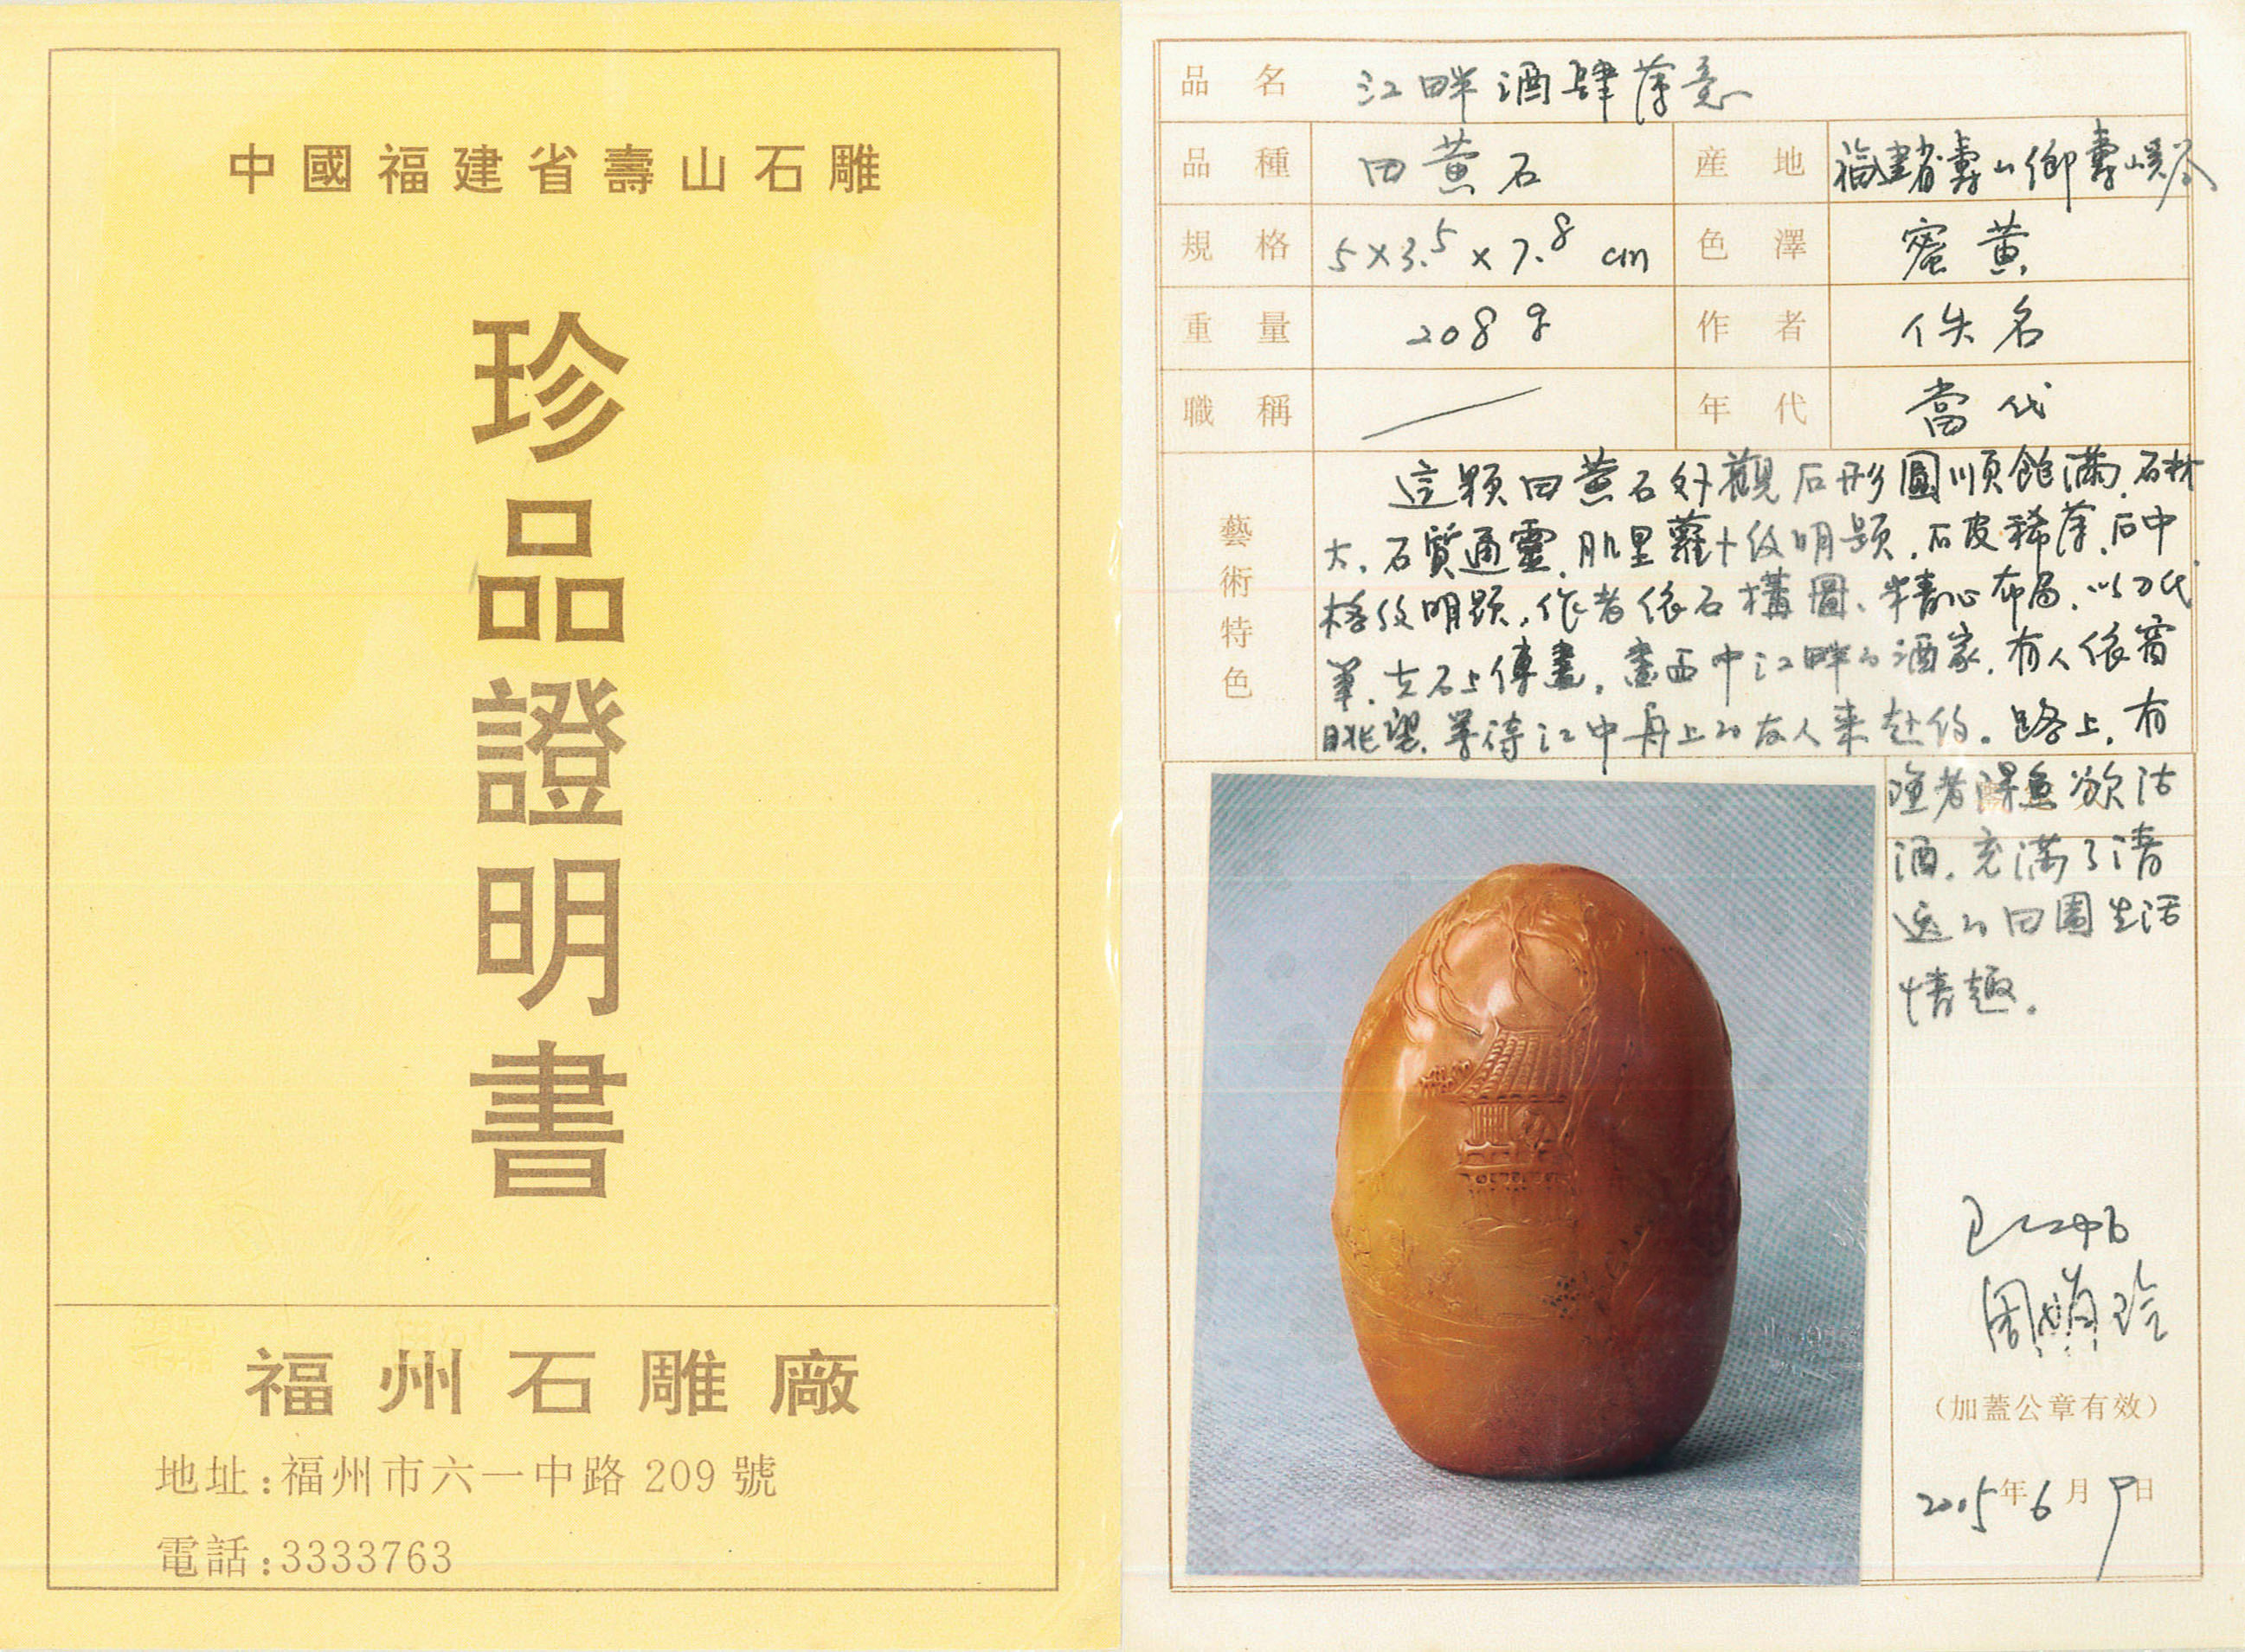 中國福建省壽山石雕
珍品證明書
福州石雕廠
地址:福州市六一中路 209 號
電話:3333763
品名 江畔酒肆薄意
品種 田黃石 產地 福建省壽山鄉壽山溪谷
規格 5×3.5×7.8 cm 色澤 蜜黃
重量 208g 作者 佚名
職稱 — 年代 當代
藝術特色
這顆田黃石外觀石形圓順飽滿,石材
大,石質通靈,肌里蘿卜紋明顯,石皮稀薄,石中
格紋明顯,作者依石構圖、精心布局,以刀代
筆,在石上傳畫,畫面中江畔的酒家,有人依窗
眺望,等待江中舟上的友人來赴約。路上,有
漁者提魚欲沽
酒,充滿了清
逸的田園生活
情趣。
(加蓋公章有效)
2005年6月9日